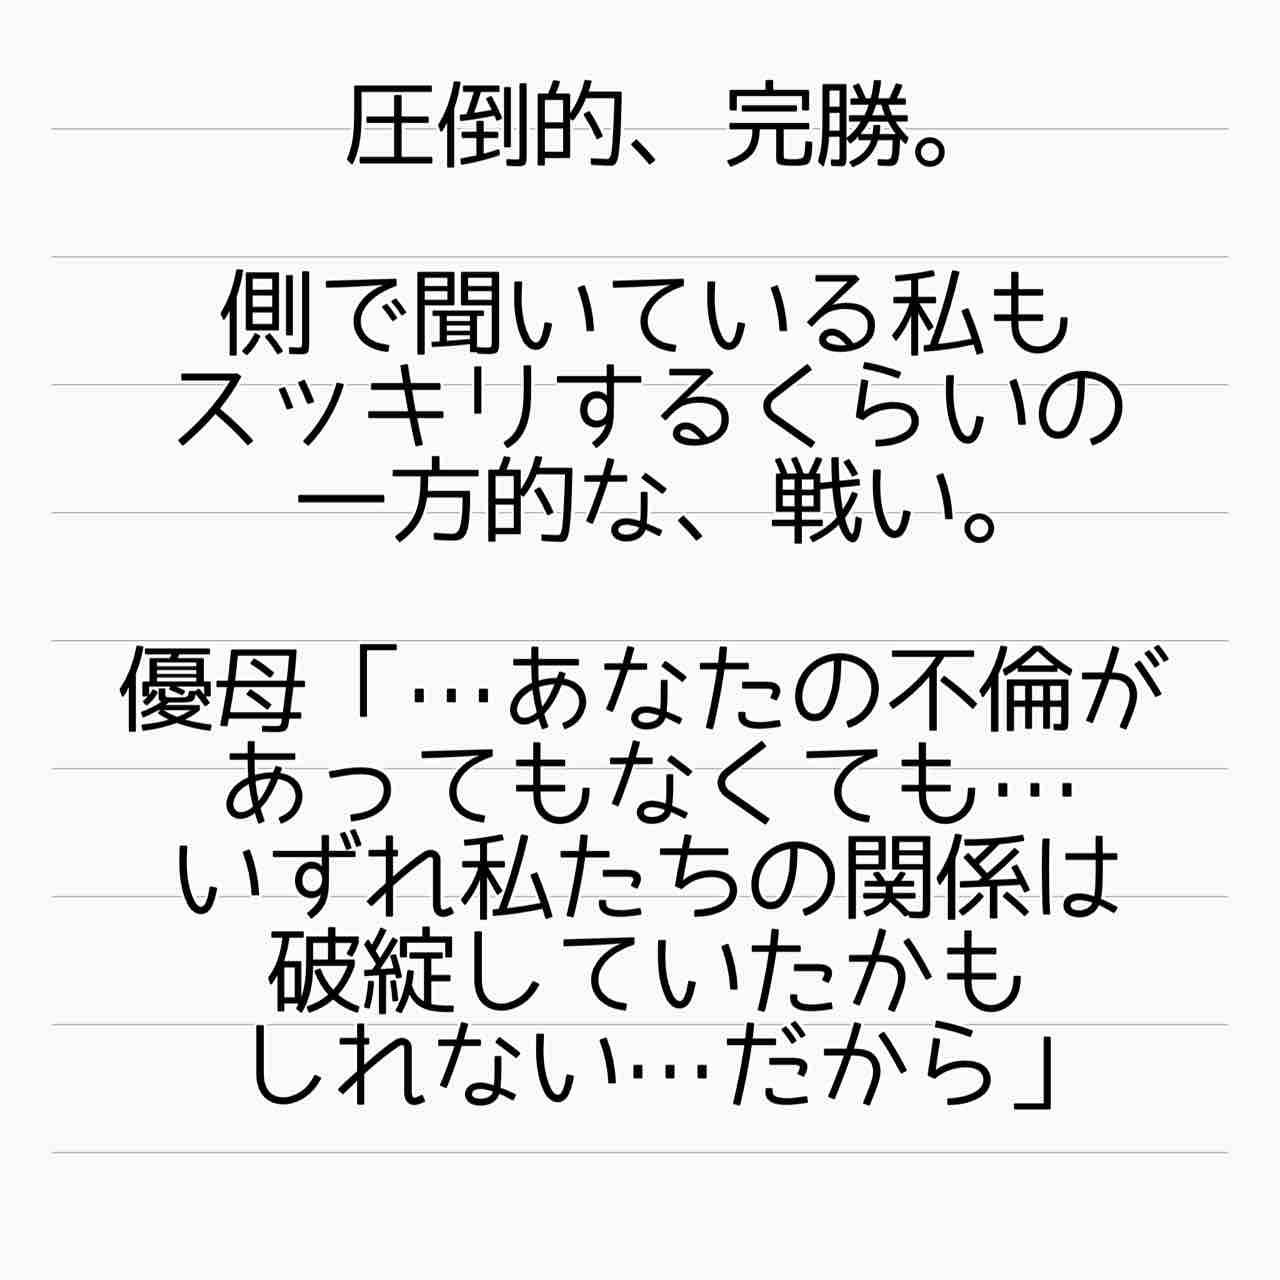 圧倒的、完勝。
側で聞いている私も
スッキリするくらいの
一方的な、戦い。
優母「…あなたの不倫が
あってもなくても…
いずれ私たちの関係は
破綻していたかも
しれない…だから」